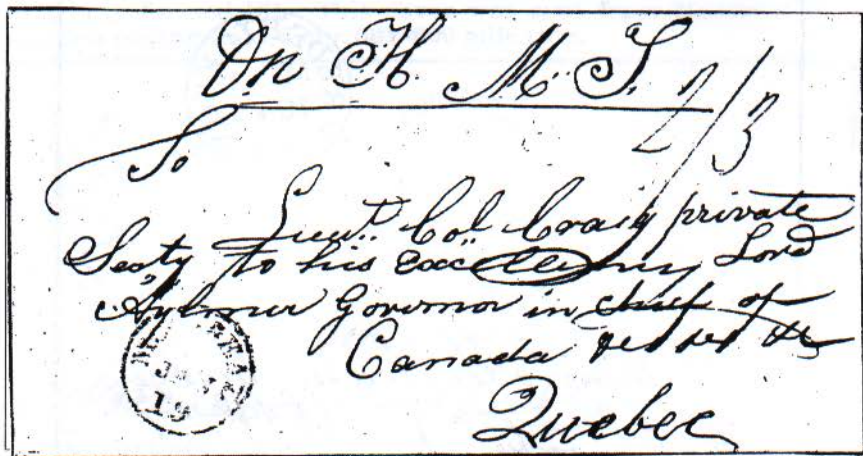 On H. M. S.
2/3
To
Lieut. Col. Craig private
Secty to his Excellency Lord
Aylmer Governor in chief of
Canada &c &c &c
Quebec
MONTREAL
19